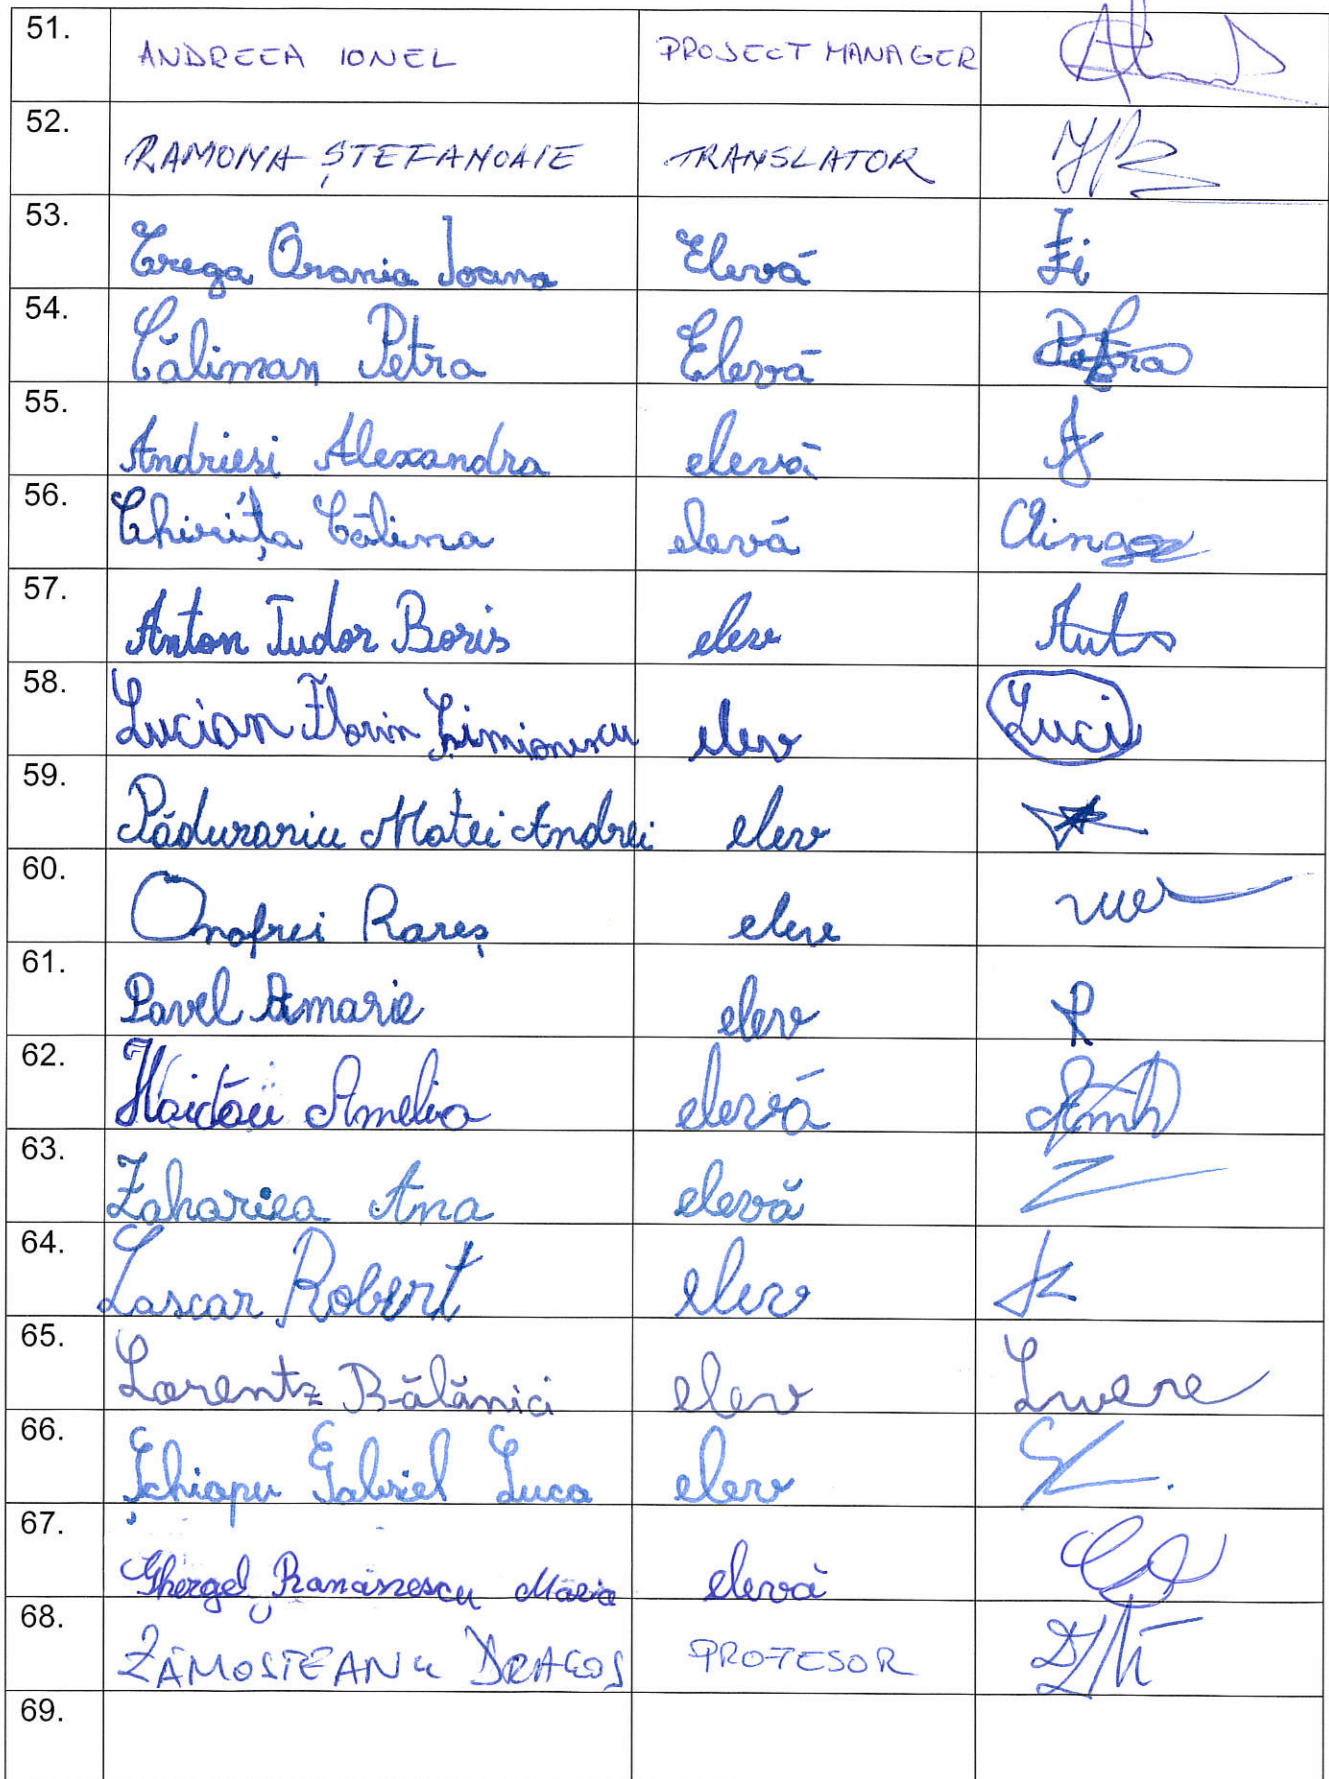 51. ANDREEA IONEL PROJECT MANAGER
52. RAMONA ȘTEFANOAIE TRANSLATOR
53. Crega Orania Ioana Elevă
54. Căliman Petra Elevă Petra
55. Andriesi Alexandra elevă
56. Chiriță Călina elevă
57. Anton Tudor Boris elev
58. Lucian Florin Simionescu elev Luci
59. Pădurariu Matei Andrei elev
60. Onofrei Rareș elev
61. Pavel Amarie elev
62. Haidău Amelia elevă
63. Zahariea Ana elevă
64. Lascar Robert elev
65. Lorentz Bălănici elev
66. Șchiapu Gabriel Luca elev
67. Ghergel Maria elevă
68. ZĂMOSTEANU DRAGOS PROFESOR
69.